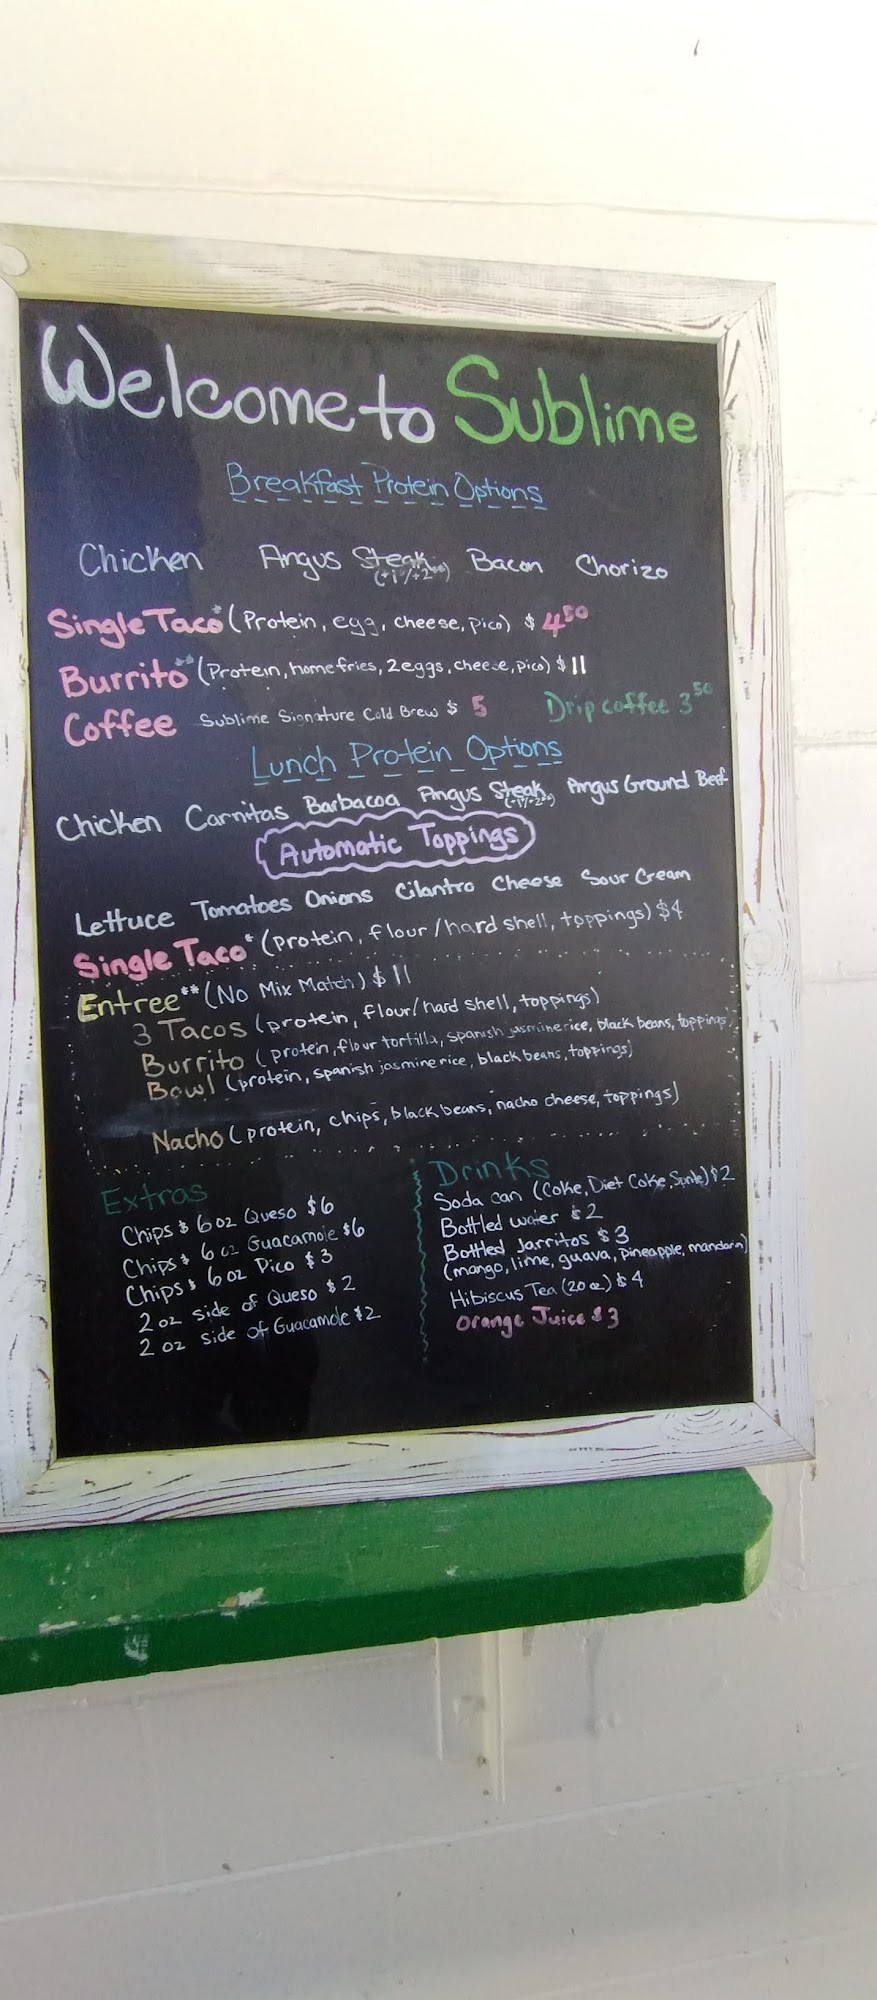 Welcome to Sublime
Breakfast Protein Options
Chicken Angus Steak Bacon Chorizo
Single Taco* (Protein, egg, cheese, pico) $ 4.50
Burrito** (Protein, homefries, 2 eggs, cheese, pico) $11
Coffee Sublime Signature Cold Brew $ 5 Drip coffee 3.50
Lunch Protein Options
Chicken Carnitas Barbacoa Angus Steak Angus Ground Beef
Automatic Toppings
Lettuce Tomatoes Onions Cilantro Cheese Sour Cream
Single Taco* (protein, flour/hard shell, toppings) $4
Entree** (No Mix Match) $11
3 Tacos (protein, flour/hard shell, toppings)
Burrito (protein, flour tortilla, spanish jasmine rice, black beans, toppings)
Bowl (protein, spanish jasmine rice, black beans, toppings)
Nacho (protein, chips, black beans, nacho cheese, toppings)
Extras
Chips & 6 oz Queso $6
Chips & 6 oz Guacamole $6
Chips & 6 oz Pico $3
2 oz side of Queso $2
2 oz side of Guacamole $2
Drinks
Soda can (Coke, Diet Coke, Sprite) $2
Bottled water $2
Bottled Jarritos $3
(mango, lime, guava, pineapple, mandarin)
Hibiscus Tea (20 oz) $4
Orange Juice $3